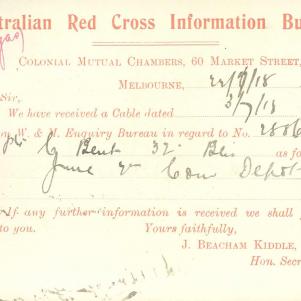 stralian Red Cross Information Bu
Colonial Mutual Chambers, 60 Market Street,
Melbourne, 22/7/18
Sir,
We have received a Cable dated 3/7/18
on W. & M. Enquiry Bureau in regard to No. 2806
G Bent 32 Bn as fo
June Con Depot
If any further information is received we shall
Yours faithfully,
J. BEACHAM KIDDLE,
Hon. Secr